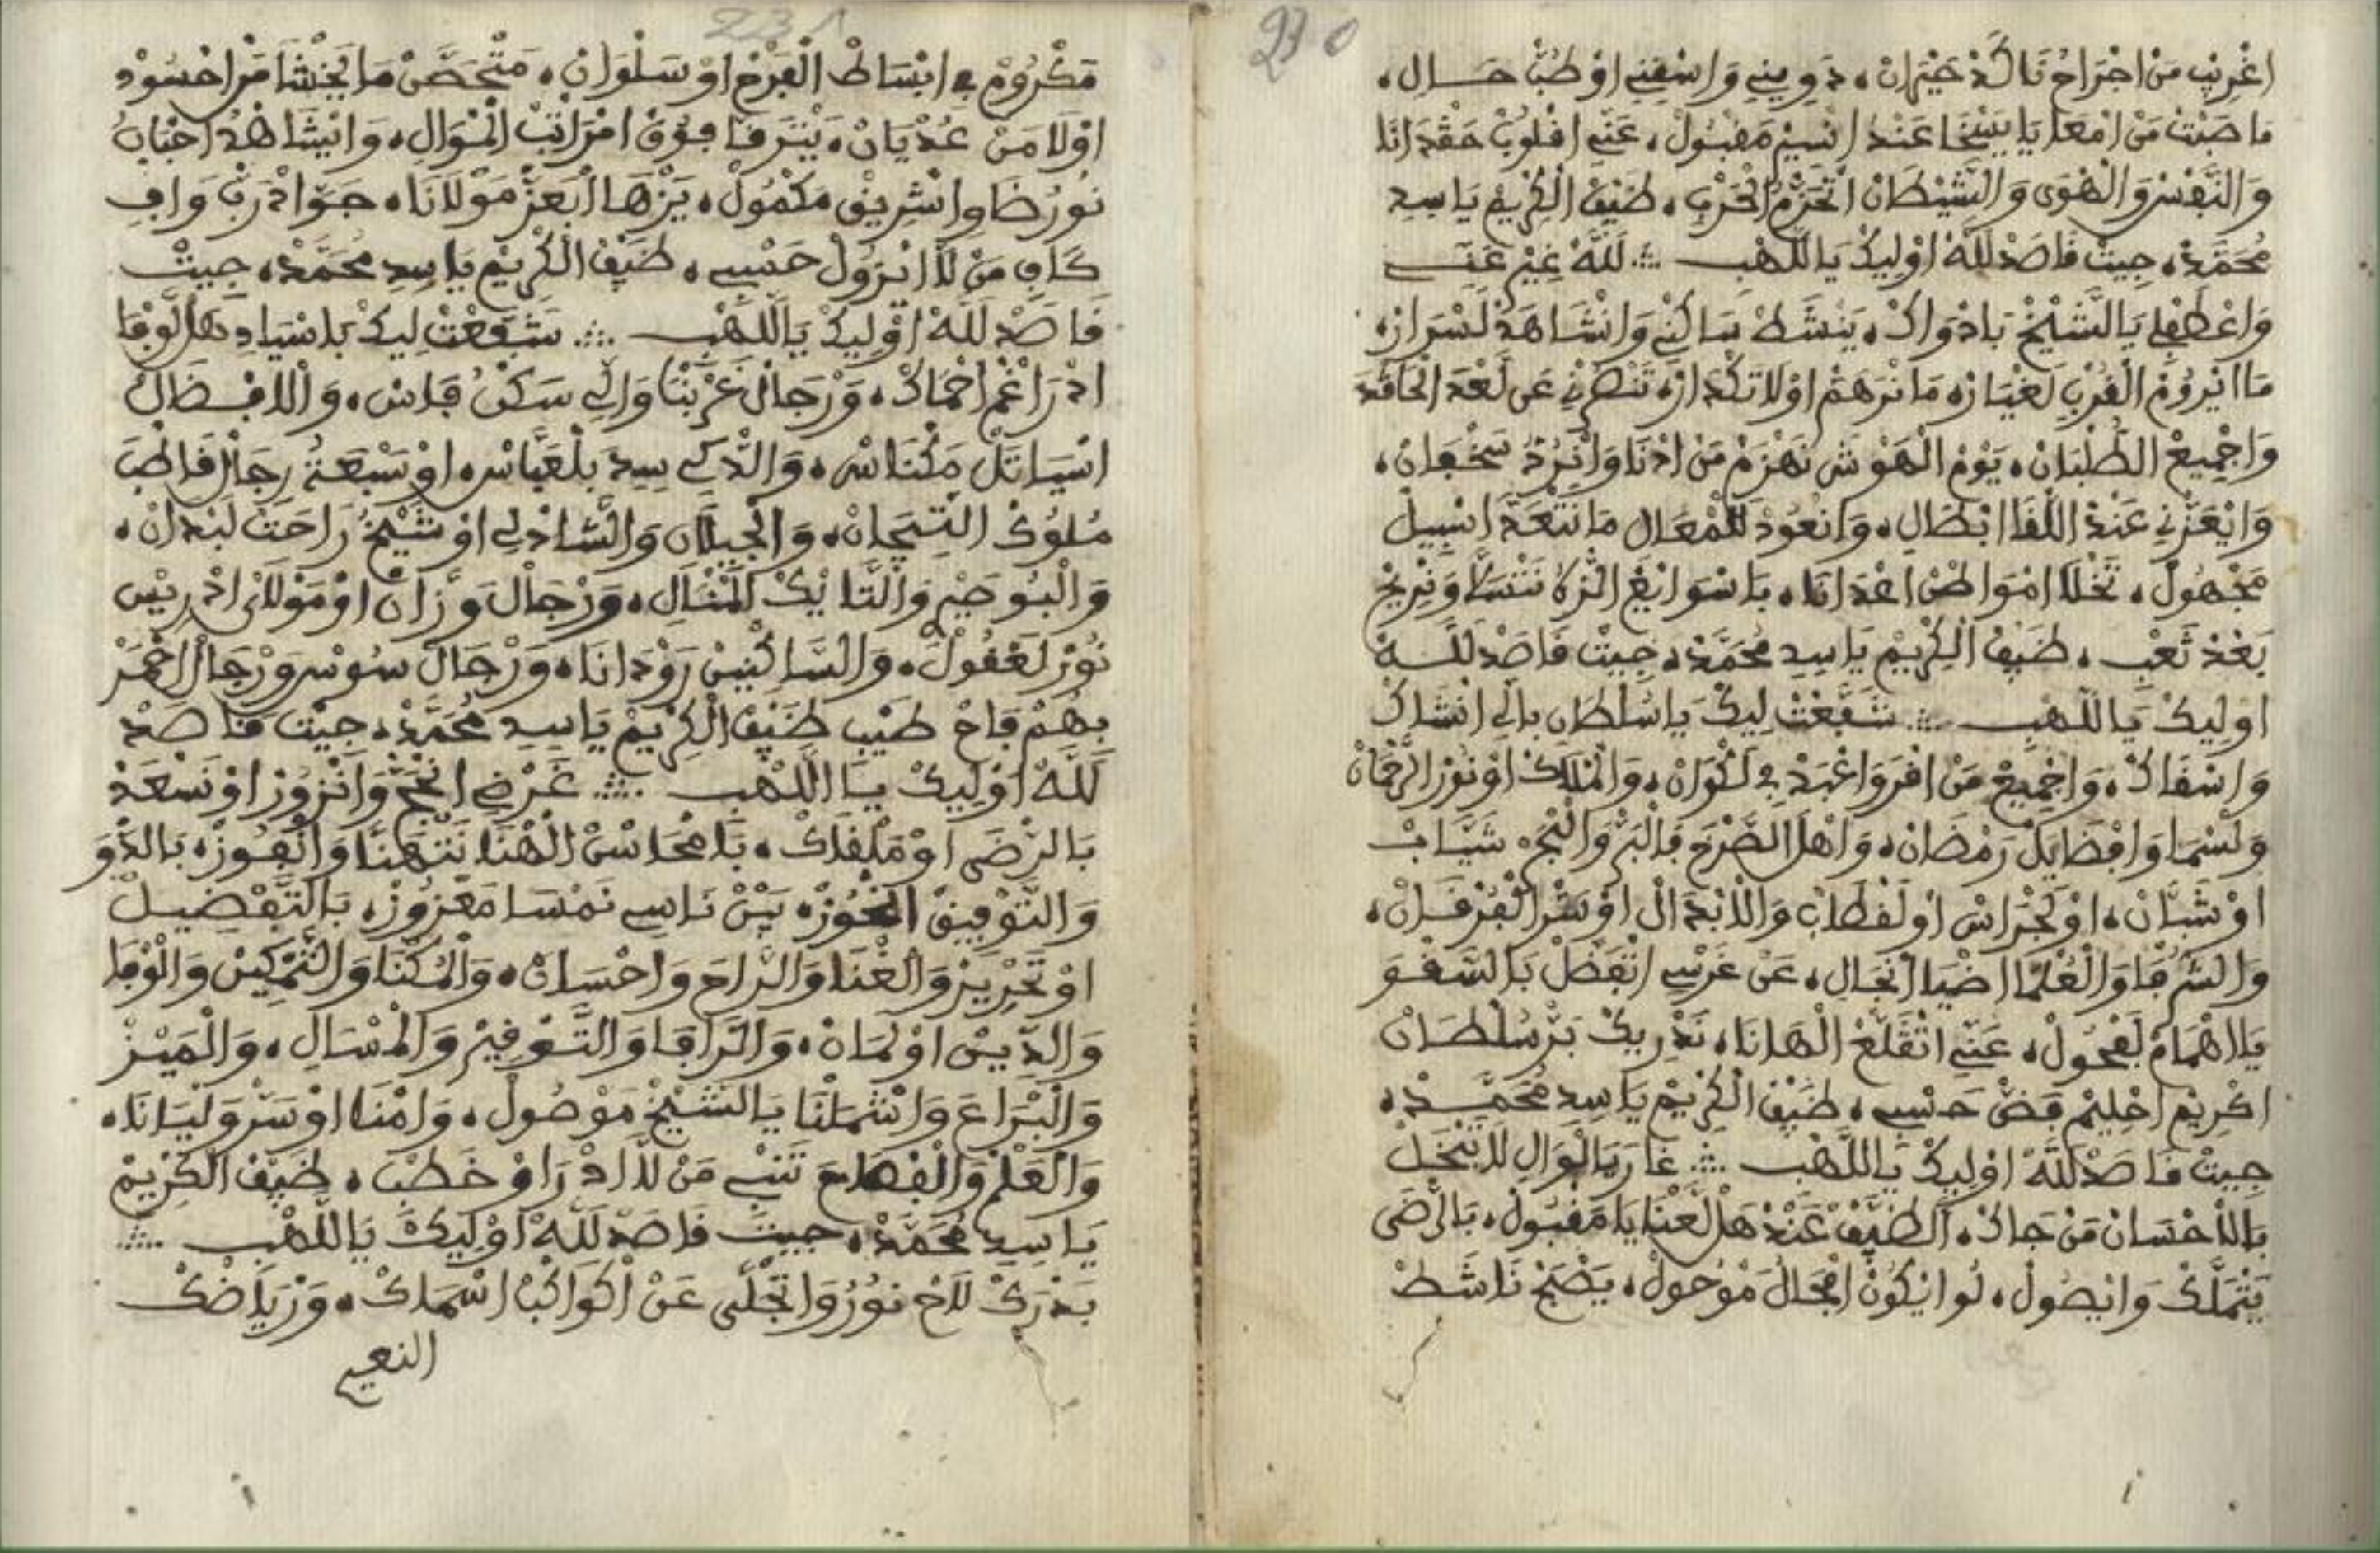 230
اغْرِيبْ مَنْ اجْرَاحُ نَاكَدْ حَيْرَانْ، دَوِينِي وَاسْقِينِي اوْ طُبْ حَـالِ،
مَا صَبْتْ مَنْ امْعَا يَا يَسْخَا عَنْدْ انْسِيمْ مَقْبُولْ، عَنِّي اقْلُوبْ حَقْدَانَا
وَالنَّفْسْ وَالْهْوَى وَالشَّيْطَانْ اتْحَزّْمْ الْحَرْبِ، ضَيْفْ الْكْرِيمْ يَا سِيدِ
مُحَمَّدْ، جِيتْ قَاصَدْ لَلَّهْ اوْلِيكْ يَا اللَّهْبِ ؞ لَلَّهْ غِيرْ عَنِّي
وَاعْطَفْلِي يَا الشَّيْخْ بَادْوَاكْ، يَنْشَطْ سَاكْنِي وَانْشَاهَدْ لَسْرَارْ،
مَا انْرُومْ الْقُرْبِ لَغْيَارْ، مَا نْرَهَمْ اوْلَا تَكْدَارْ، تَنْصَرْنِي عَنْ لَعْدَ الْحَاقْدَ
وَاجْمِيعْ الطَّلْبَانْ، يَوْمْ الْهَوْشْ نَهْزَمْ مَنْ ادْنَا وَانْرُدّْ سَخْفَانْ،
وَانْعَزْنِي عَنْدْ اللّْقَا ابْطَالِ، وَانْعُودْ لَلْمْعَالِ مَا نَتْعَدَّ اسْبِيلْ
مَجْهُولْ، تَخْلَا امْوَاطْنْ اعْدَانَا، بَاسْوَابْغْ الزّْرَدْ نَتْسَلَّا وَنْرِيحْ
بَعْدْ تَعْبِ، ضَيْفْ الْكْرِيمْ يَا سِيدِ مُحَمَّدْ، جِيتْ قَاصَدْ لَلَّـهْ
اوْلِيكْ يَا اللَّهْبِ ؞ شَفَّعْتْ لِيكْ يَا سُلْطَانِ بَالِّي انْشَاكْ
وَاسْقَاكْ، وَاجْمِيعْ مَنْ اقْرَ وَاعْبَدْ فِي لَكْوَانْ، وَالْمْلَاكْ اوْ نُورْ الرَّحْمَانْ
وَلَسْمَا وَافْضَايَلْ رَمْضَانْ، وَاهْلْ الصَّرْخَ فَالْبَرّْ وَالْبْحَرْ شَيَّابْ
اوْ شَبَّانْ، اوْلَجْرَاسْ اوْ لَقْطَابْ وَالَابْدَالْ اوْ سَرّْ الْفُرْقَـانْ،
وَالشّْرْفَا وَالْعُلْمَا اضْيَا انْجَالِ، عَنْ غَرْسِي اتْفَضَّلْ بَالسَّقْوَ
يَا اهْمَامْ لَفْحُولْ، عَنِّي اتْقَلَّعْ الْهَانَا، نَدْرِيكْ بَرّْ سُلْطَـانْ
اكْرِيمْ احْلِيمْ قَضّْ حَسْبِي، ضَيْفْ الْكْرِيمْ يَا سِيدِ مُحَمَّـدْ،
جِيتْ قَاصَدْ لَلَّهْ اوْلِيكْ يَا اللَّهْبِ ؞ غَارَ يَا الْوَالِ لَا تَبْخَلْ
بَالَاحْسَانْ مَنْ جَاكْ، الضَّيْفْ عَنْدْ هَلْ لَعْنَا يَا مَقْبُولْ، بَالرّْضَى
يَتْمَلَّكْ وَايْصُولْ، لُو ايْكُونْ امْحَالُ مَوْحُولْ، يَصْبَحْ نَاشَطْ
231
مَكْرُومْ فِي ابْسَاطْ الْفَرْحْ اوْ سَلْوَانْ، مَتْحَصَّنْ مَا يَخْشَا مَنْ احْسُودْ
اوْلَا مَنْ عُدْيَانْ، يَتْرَقَّا فُوقْ امْرَاتَبْ الْمْوَالِ، وَايْشَاهْدُ اجْنَابُ
نُورْ ضَاوِ انْشْرِيقْ مَكْمُولْ، يَزْهَا ابْعَزّْ مَوْلَانَا، جَوَّادْ رَبّْ وَافِ
كَافِ مَنْ لَا انْزُولْ حَسْبِي، ضَيْفْ الْكْرِيمْ يَا سِيدِ مُحَمَّدْ، جِيتْ
قَاصَدْ لَلَّهْ اوْلِيكْ يَا اللَّهْبِ ؞ شَفَّعْتْ لِيكْ يَا سْيَادِ هَلْ لَوْفَا
ادْرَاغَمْ احْمَاكْ، وَرْجَالْ غَرْبْنَا وَالِّي سَكْنُ فَاسْ، وَالَافْضَالْ
اسْيَاتَلْ مَكْنَاسْ، وَالذّْكِي سِيدِ بَلْعَبَّاسْ، اوْ سَبْعَةْ رَجَالْ قَاطْبَ
مْلُوكْ التِّيجَانْ، وَالْجِيلَانِ وَالشَّادْلِي اوْ شَيْخُ رَاحَتْ لَبْدَانْ،
وَالْبُوصِيرِ وَالتَّايْكْ الْمْنَالِ، وَرْجَالْ وَزَّانْ اوْ مَوْلَايْ ادْرِيسْ
نُورْ لَعْقُولْ، وَالسَّاكْنِينْ رُودَانَا، وَرْجَالْ سُوسْ وَرْجَالْ احْمَرْ
بِهُمْ فَاحْ طَيْبِ ضَيْفْ الْكْرِيمْ يَا سِيدِ مُحَمَّدْ، جِيتْ قَاصَدْ
لَلَّهْ اوْلِيكْ يَا اللَّهْبِ ؞ غَرْضِي انْحَجّْ وَانْزُورْ اوْ نَسْعَدْ
بَالرّْضَى اوْ مَلْقَاكْ، يَا مْحَاسْنْ الْهْنَا نَتْهَنَّا وَانْفُوزْ، بَالدّْوَ
وَالتَّوْفِيقْ انْحُوزْ، بَيْنْ نَاسِي نَمْسَا مَعْزُوزْ، بَالتَّفْضِيلْ
اوْ تَحْرِيزْ وَالْغْنَا وَالرَّاحَ وَاحْسَانْ، وَالْمُكْنَا وَالتَّمْكِينْ وَالْوْفَا
وَالدِّينْ اوْلَمَانْ، وَالرَّافَا وَالتَّوْفِيرْ وَالْمْسَالِ، وَالْمَيْزْ
وَالْبْرَاعَ وَاشْمَلْنَا يَا الشَّيْخْ مَوْصُولْ، وَامْنَا اوْ سَرّْ وَلْيَانَا،
وَالْعَلْمْ وَالْفْهَامَ تَنْبِي مَنْ لَا ادْرَاوْ خَطْبِ، ضَيْفْ الْكْرِيمْ
يَا سِيدِ مُحَمَّدْ، جِيتْ قَاصَدْ لَلَّهْ اوْلِيكْ يَا اللَّهْبِ ؞
بَدْرَكْ لَاحْ نُورُ وَاتْجَلَّى عَنْ اكْوَاكْبْ اسْمَاكْ، وَرْيَاضَكْ
النعيم